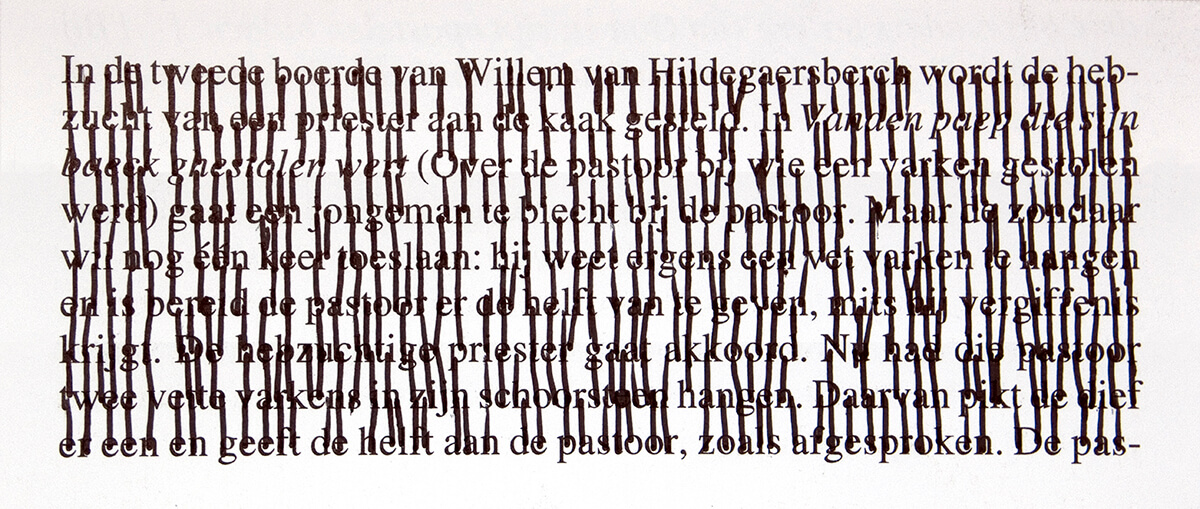 In de tweede boerde van Willem van Hildegaersberch wordt de heb-
zucht van een priester aan de kaak gesteld. In Vanden paep die sijn
baeck ghestolen wert (Over de pastoor bij wie een varken gestolen
werd) gaat een jongeman te biecht bij de pastoor. Maar de zondaar
wil nog één keer toeslaan: hij weet ergens een vet varken te hangen
en is bereid de pastoor er de helft van te geven, mits hij vergiffenis
krijgt. De hebzuchtige priester gaat akkoord. Nu had die pastoor
twee vette varkens in zijn schoorsteen hangen. Daarvan pikt de dief
er een en geeft de helft aan de pastoor, zoals afgesproken. De pas-